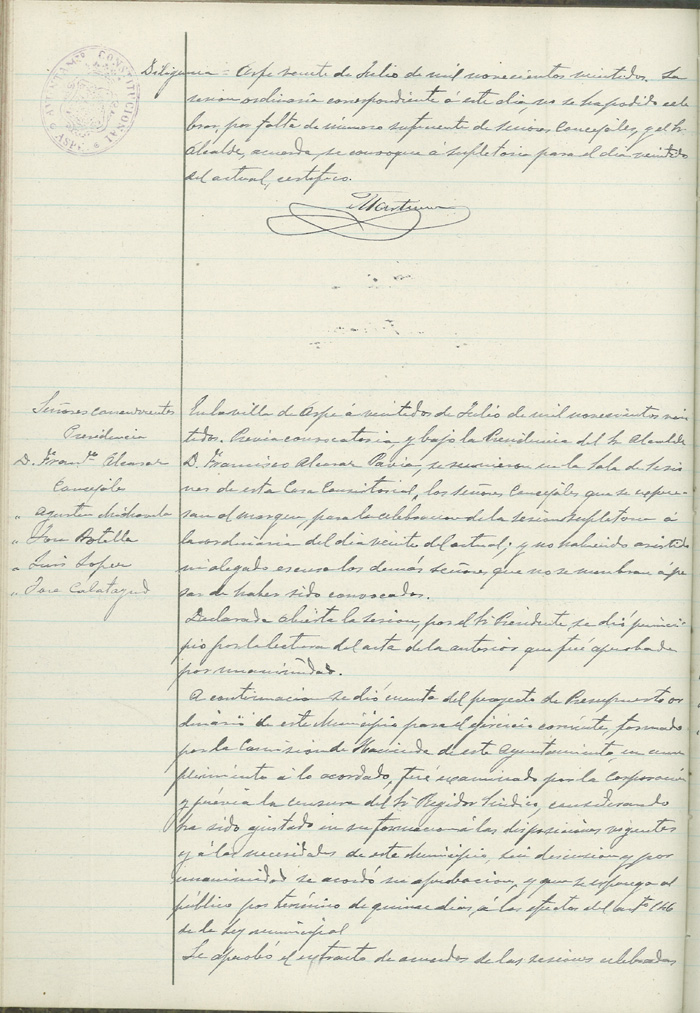 AYUNTAMIENTO CONSTITUCIONAL
ASPE
Diligencia = Aspe veinte de Julio de mil novecientos veintidos. La
sesion ordinaria correspondiente á este dia, no se ha podido cele
brar, por falta de número suficiente de señores Concejales, y el Sr.
Alcalde, acuerda, se convoque á supletoria para el dia veintidos
del actual, certifico.
Señores concurrentes
Presidencia
D. Franco Alcaraz
Concejales
" Agustin
" Jose Botella
" Luis Lopez
" Jose Calatayud
En la villa de Aspe á veintidos de Julio de mil novecientos vein
tidos. Previa convocatoria, y bajo la Presidencia del Sr. Alcalde
D. Francisco Alcaraz Pavia, se reunieron en la Sala de Sesio
nes de esta Casa Consistorial, los señores Concejales que se expre-
san al margen, para la celebracion de la sesion supletoria á
la ordinaria del dia veinte del actual; y no habiendo asistido
ni alegado escusa los demas señores, que no se nombran á pe
sar de haber sido convocados.
Declarada abierta la sesion, por el Sr. Presidente, se dió princi-
pio por la lectura del acta de la anterior que fué aprobada
por unanimidad.
A continuacion se dió cuenta del proyecto de Presupuesto or
dinario de este Municipio para el ejercicio corriente, formado
por la Comision de Hacienda de este Ayuntamiento, en cum
plimiento á lo acordado, fué examinado por la Corporacion
y prévia la censura del Sr. Regidor Sindico, considerando
ha sido ajustado en su formacion á las disposiciones vigentes
y á las necesidades de este Municipio, sin discusion y por
unanimidad se acordó su aprobacion, y que se esponga al
público por término de quince dias, á los efectos del arto. 146
de la Ley municipal
Se aprobó el extracto de acuerdos de las sesiones celebradas